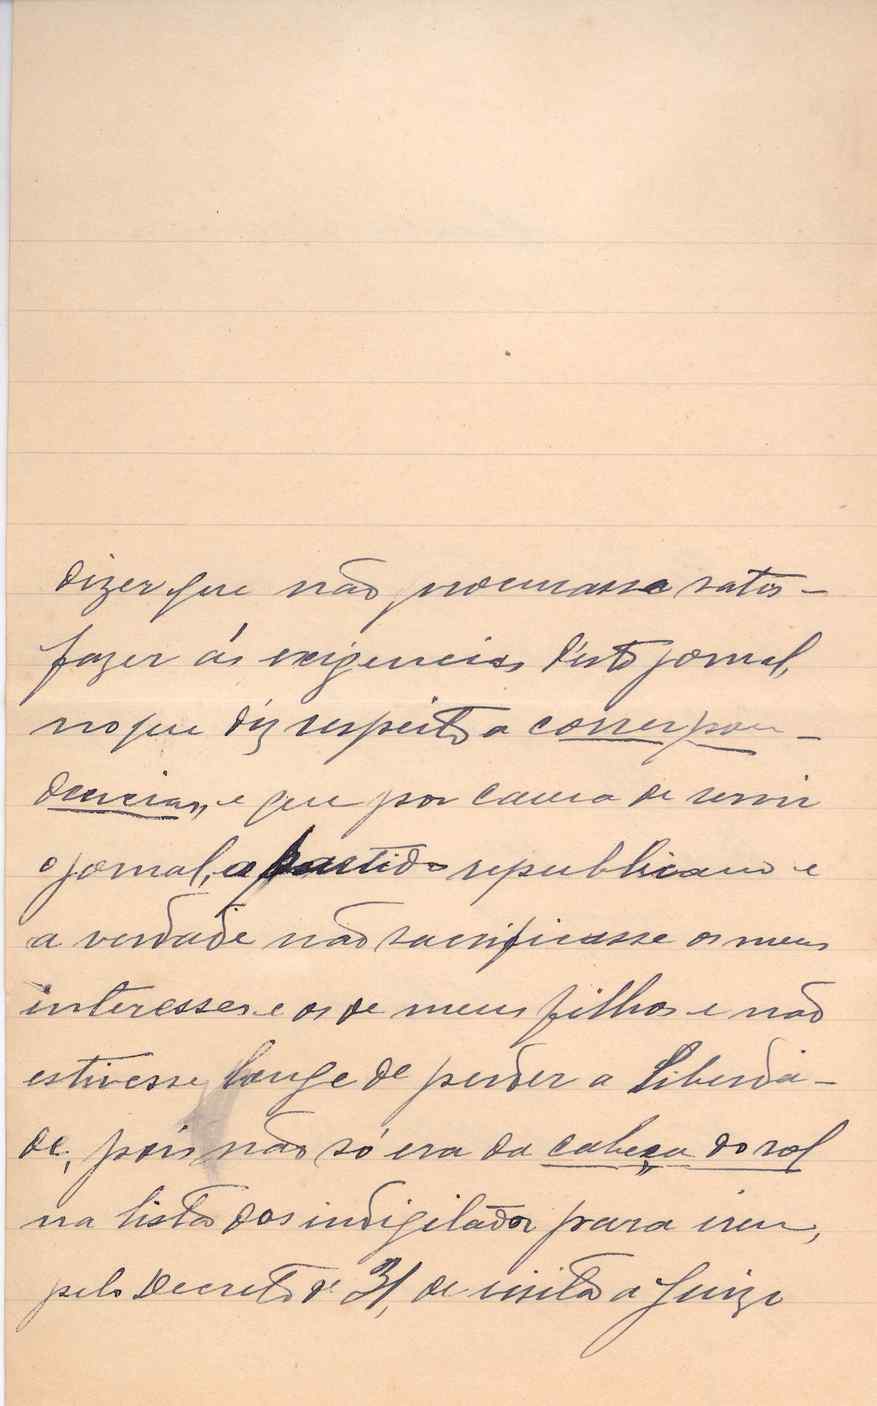 dizer que não procurasse satis-
fazer ás exigencias d'este jornal,
no que diz respeito a correspon-
dencias, e que por causa de servir
o jornal, o partido republicano e
a verdade não sacrificasse os meus
interesses e os de meus filhos e não
estivesse longe de perder a liberda-
de, pois não só era da cabeça do rol
na lista dos indigitados para irem,
pelo Decreto de 31, de visita a Juizo